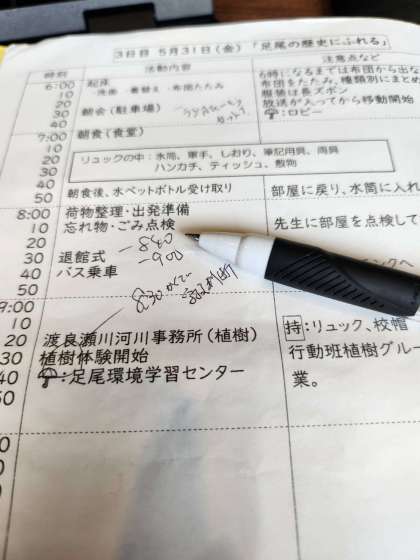 3日目 5月31日(金) 「足尾の歴史にふれる」
時刻 活動内容 注意点など
6:00 起床 6時になるまでは布団から出な
10 ・洗面・着替え・布団たたみ 布団をたたみ、種類別にまとめ
20 服装は長ズボン
30 朝会(駐車場) 放送が入ってから移動開始
40 :ロビー
50
7:00 朝食(食堂)
10
20 リュックの中:水筒、軍手、しおり、筆記用具、雨具
30 ハンカチ、ティッシュ、敷物
40
50 朝食後、水ペットボトル受け取り 部屋に戻り、水筒に入れ
8:00 荷物整理・出発準備
10 忘れ物・ごみ点検 先生に部屋を点検して
20 840
30 退館式 -900
40 バス乗車 ンクへ
50 830
9:00
10
20 渡良瀬川河川事務所(植樹) 持:リュック、校帽
30 植樹体験開始 行動班植樹グルー
40 :足尾環境学習センター 業。
50
0
0
0